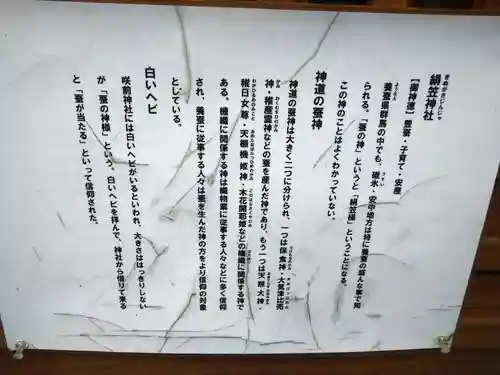 絹笠神社
きぬがさじんじゃ
【御神徳】豊蚕・子育て・安産
養蚕県群馬の中でも、碓氷・安中地方は特に養蚕の盛んな事で知
ようさん
うすい
られる。「蚕の神」というと「絹笠様」ということになる。
この神のことはよくわかっていない。
神道の蚕神
神道の蚕神は大きく二つに分けられ、一つは保食神・大気津比売
神・稚産霊神などの蚕を産んだ神であり、もう一つは天照大神・
稚日女尊・天棚機姫神・木花開耶姫などの機織に関係する神で
ある。機織に関係する神は織物業に従事する人々などに多く信仰
され、養蚕に従事する人々は蚕を生んだ神の方をより信仰の対象
としている。
白いヘビ
咲前神社には白いヘビがいるといわれ、大きさははっきりしない
が「蚕の神様」という。白いヘビを拝んで、神社から借りて来る
と「蚕が当たる」といって信仰された。